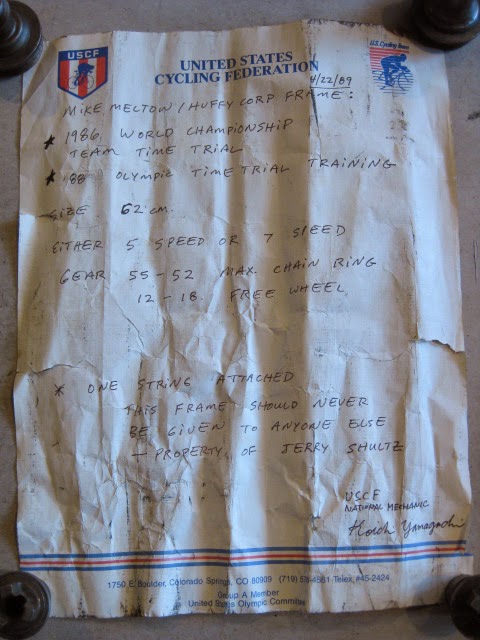 USCF
UNITED STATES
CYCLING FEDERATION
U.S. Cycling Team
4/22/89
MIKE MELTON / HUFFY CORP FRAME:
* 1986 WORLD CHAMPIONSHIP
TEAM TIME TRIAL
* '88 OLYMPIC TIME TRIAL TRAINING
SIZE 62 cm.
EITHER 5 SPEED OR 7 SPEED
GEAR 55-52 MAX. CHAIN RING
12-18. FREE WHEEL
* ONE STRING ATTACHED
THIS FRAME SHOULD NEVER
BE GIVEN TO ANYONE ELSE
— PROPERTY OF JERRY SHULTZ
USCF
NATIONAL MECHANIC
Koichi Yamaguchi
1750 E. Boulder, Colorado Springs, CO 80909 (719) 578-4581 Telex #45-2424
Group A Member
United States Olympic Committee